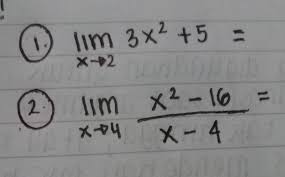 1. lim x→2 3x² + 5 =
2. lim x→4 (x² - 16)/(x - 4) =